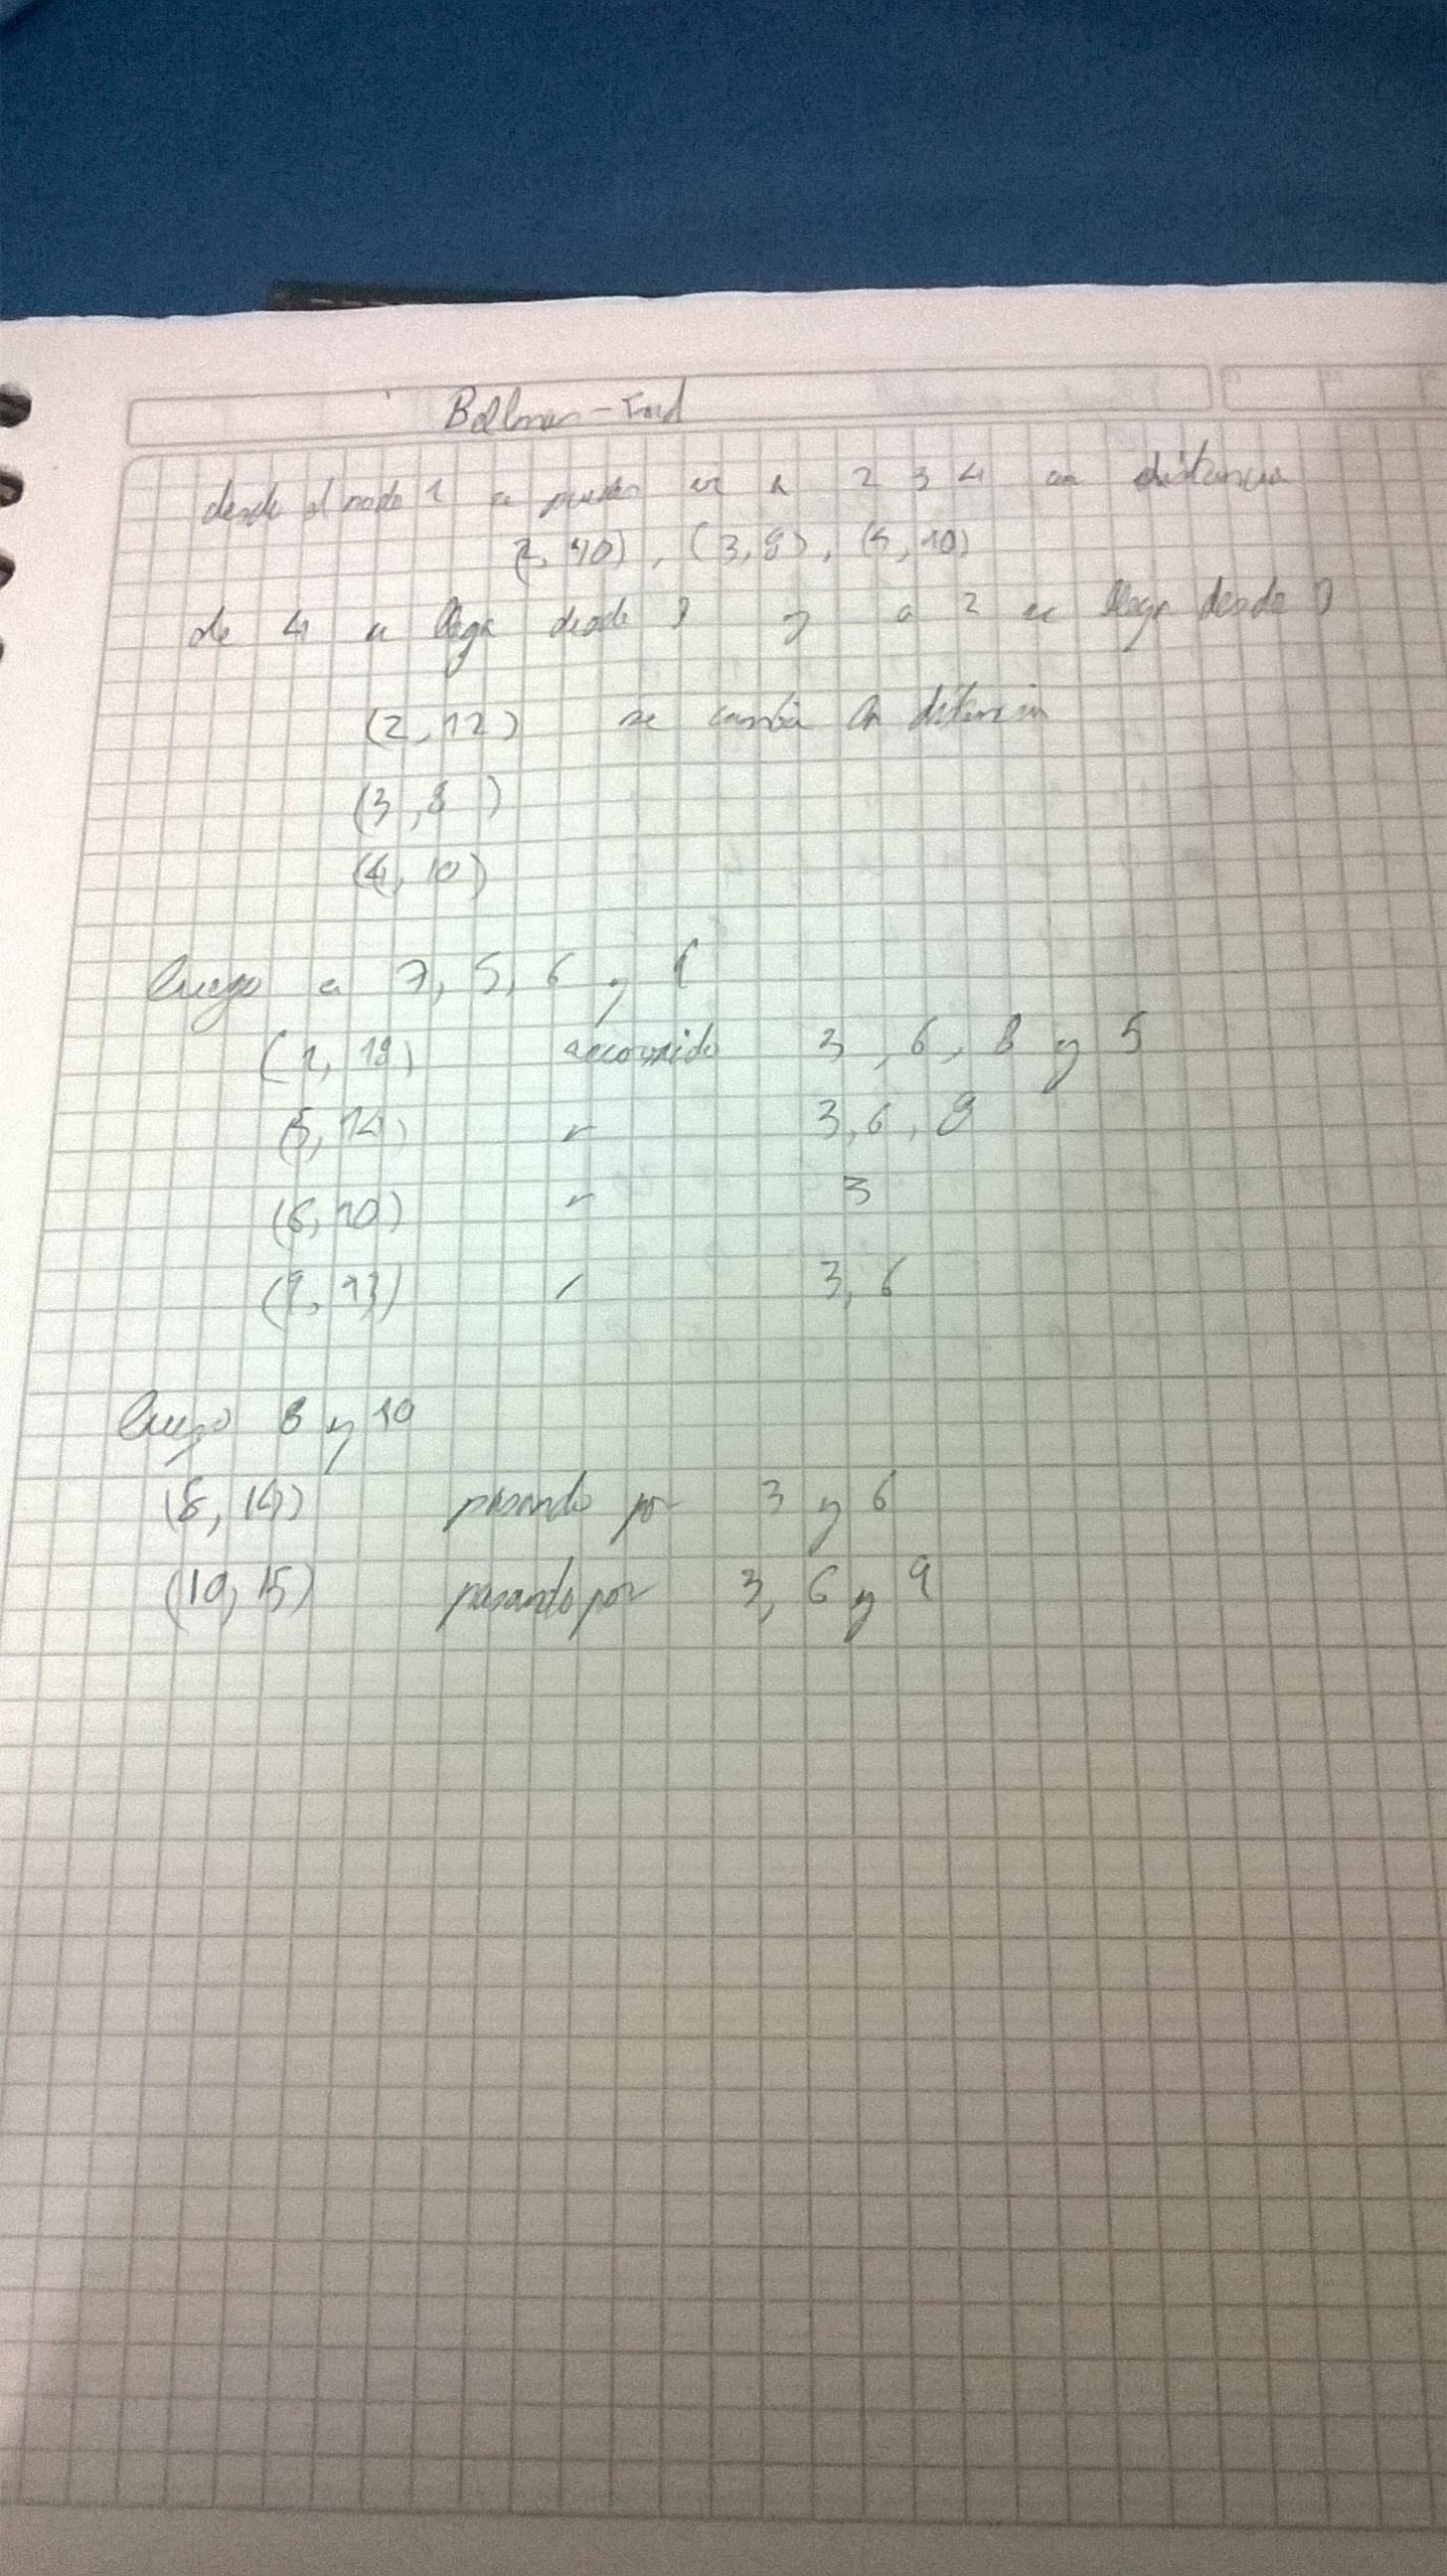 Bellman-Ford
desde el nodo 1 se puede ir a 2 3 4 con distancia
(2, 10), (3,8), (4, 10)
de 4 se llega desde y a 2 se llega desde
(2,12) se cambia la distancia
(3,8)
(4,10)
luego a 7, 5, 6 y
(7, 18) recorrido 3, 6, 8 y 5
(5,14) 3,6,8
(6,10) 3
(9, 13) 3, 6
luego 8 y 10
(8, 14) pasando por 3 y 6
(10, 15) pasando por 3, 6 y 9